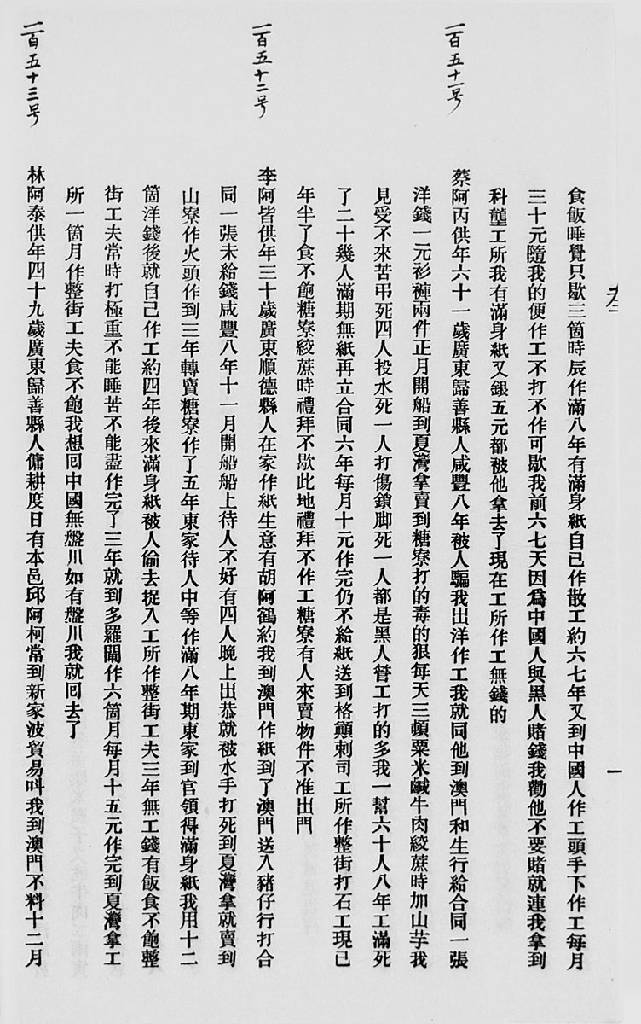 食飯睡覺只歇三箇時辰作滿八年有滿身紙自己作散工約六七年又到中國人作工頭手下作工每月
三十元隨我的便作工不打不作可歇我前六七天因爲中國人與黑人賭錢我勸他不要賭就連我拿到
科壟工所我有滿身紙又銀五元都被他拿去了現在工所作工無錢的
一百五十一号
蔡阿丙供年六十一歲廣東歸善縣人咸豐八年被人騙我出洋作工我就同他到澳門和生行給合同一張
洋錢一元衫褲兩件正月開船到夏灣拿賣到糖寮打的毒的狠每天三頓粟米鹹牛肉絞蔗時加山芋我
見受不來苦弔死四人投水死一人打傷鎖脚死一人都是黑人管工打的多我一幫六十人八年工滿死
了二十幾人滿期無紙再立合同六年每月十元作完仍不給紙送到格頭刺司工所作整街打石工現已
年半了食不飽糖寮絞蔗時禮拜不歇此地禮拜不作工糖寮有人來賣物件不准出門
一百五十二号
李阿皆供年三十歲廣東順德縣人在家作紙生意有胡阿鶴約我到澳門作紙到了澳門送入豬仔行打合
同一張未給錢咸豐八年十一月開船船上待人不好有四人晚上出恭就被水手打死到夏灣拿就賣到
山寮作火頭作到三年轉賣糖寮作了五年東家待人中等作滿八年期東家到官領得滿身紙我用十二
箇洋錢後就自己作工約四年後來滿身紙被人偷去捉入工所作整街工夫三年無工錢有飯食不飽整
街工夫當時打極重不能睡苦不能盡作完了三年就到多羅閫作六箇月每月十五元作完到夏灣拿工
所一箇月作整街工夫食不飽我想回中國無盤川如有盤川我就回去了
一百五十三号
林阿泰供年四十九歲廣東歸善縣人傭耕度日有本邑邱阿柯當到新家波貿易呌我到澳門不料十二月